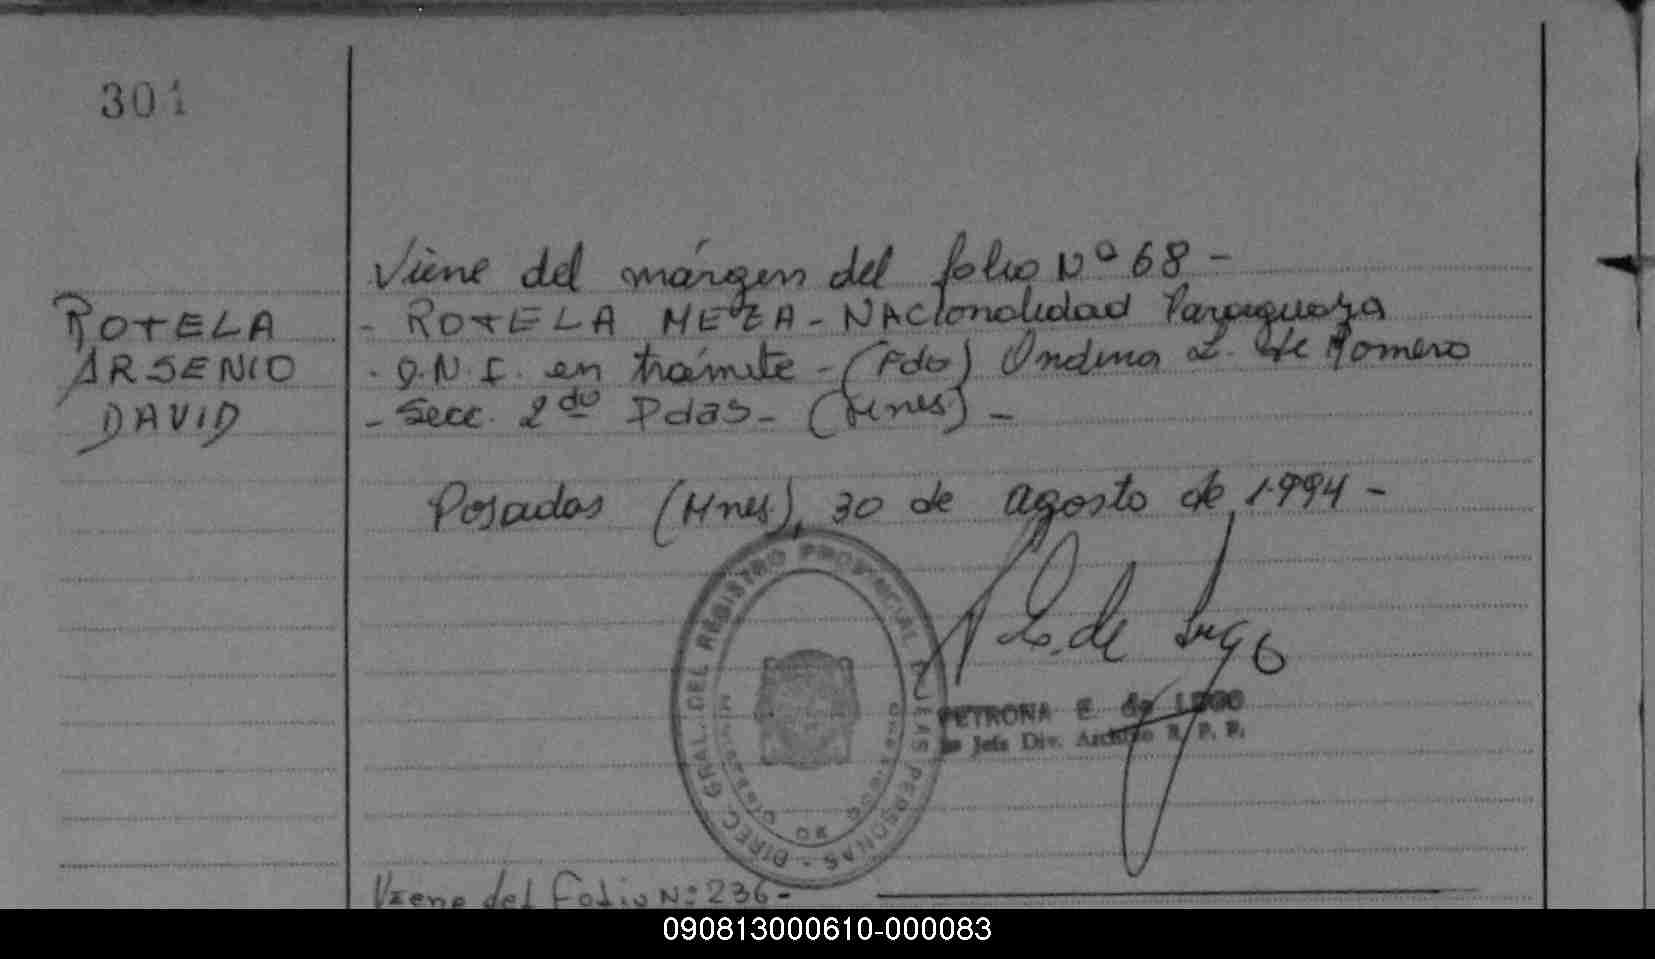 301
Viene del márgen del folio Nº 68 -
ROTELA
ARSENIO
DAVID
- ROTELA MEZA - NAcionalidad Paraguaya
- D.N.I. en trámite - (Fdo) Ondina L. de Romero
- Secc. 2do Pdas - (Mnes) -
Posadas (Mnes), 30 de agosto de 1.994 -
DIREC. GRAL. DEL REGISTRO PROVINCIAL DE LAS PERSONAS
P. E. de Lugo
PETRONA E. de LUGO
Jefa Div. Archivo R. P. P.
Viene del Folio Nº 236 -
090813000610-000083